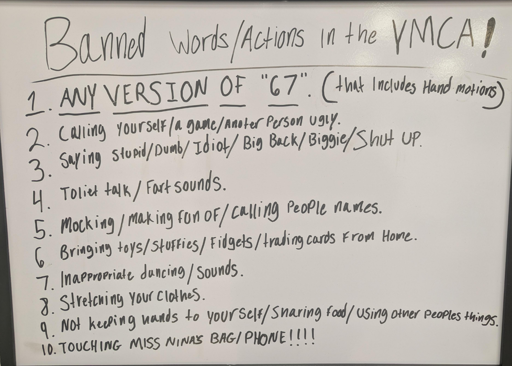 Banned Words/Actions in the YMCA!
1. ANY VERSION OF "67". (that Includes Hand motions)
2. Calling yourself/a game/anoter Person ugly.
3. Saying Stupid/Dumb/Idiot/Big Back/Biggie/Shut UP.
4. Toliet talk/Fart sounds.
5. Mocking/Making fun OF/calling People names.
6 Bringing toys/stuffies/Fidgets/trading cards From Home.
7. Inappropriate dancing/Sounds.
8. Stretching Your Clothes.
9. Not keeping hands to yourself/Sharing food/using other Peoples things.
10. TOUCHING MISS NINA'S BAG/PHONE!!!!